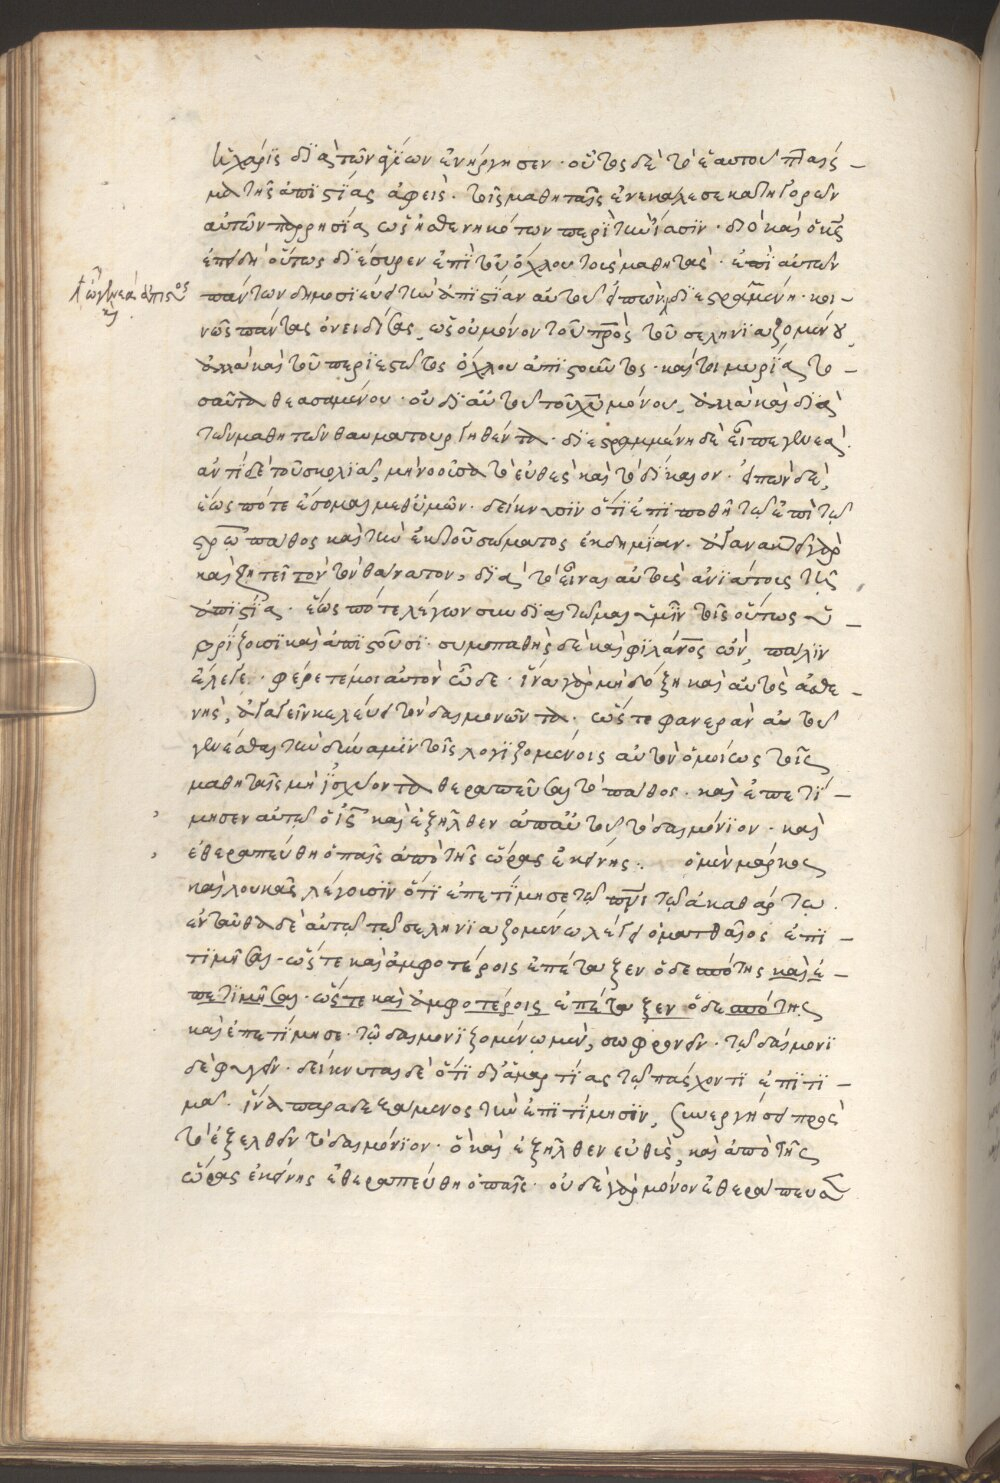 ἡ χάρις διὰ τῶν ἁγίων ἐνήργησεν· οὗτος δὲ τὸ ἑαυτοῦ πταῖς-
μα τῆς ἀπιστίας ἀφεὶς· τοῖς μαθηταῖς ἐνεκάλεσε κατηγορῶν
αὐτῶν παρρησία ὡς ἠσθενηκότων περὶ τὴν ἴασιν· διὸ καὶ ὁ κς
ἐπειδὴ οὕτως διέσυρεν ἐπὶ τοῦ ὄχλου τοὺς μαθητὰς· ἐπὶ αὐτῶν
ὦ γενεὰ ἄπιστος
πάντων δημοσιεύει τὴν ἀπιστίαν αὐτοῦ εἰπὼν, διεστραμμένη· κοι-
νῶς πάντας ὀνειδίσας, ὡς οὐ μόνον τοῦ πρς τοῦ σεληνιαζομένου,
ἀλλὰ καὶ τοῦ περιεστῶτος ὄχλου ἀπιστοῦντος· καίτοι μυρία το-
σαῦτα θεασαμένου· οὐ δι' αὐτοῦ τοῦ χυ μόνου, ἀλλὰ καὶ διὰ
τῶν μαθητῶν θαυματουργηθέντα· διεστραμμένη δὲ εἶπε γενεὰ·
ἀντὶ δὲ τοῦ σκολιὰ, μὴ νοοῦσα τὸ εὐθὲς καὶ τὸ δίκαιον· εἰπὼν δὲ,
ἕως πότε ἔσομαι μεθ' ὑμῶν· δείκνυσιν ὅτι ἐπιποθεῖ τὸ ἐπὶ τῶ
στρῶ πάθος καὶ τὴν ἐκ τοῦ σώματος ἐκδημίαν· ἀγανακτεῖ γὰρ
καὶ ζητεῖ τὸν τὸν θάνατον, διὰ τὸ εἶναι αὐτοὺς ἀνιάτους τῆ
ἀπιστία· ἕως πότε λέγων συνδιαιτῶμαι ὑμῖν τοῖς οὕτως ὑ-
βρίζουσι καὶ ἀπιστοῦσι· συμπαθὴς δὲ καὶ φιλάνος ὢν, πάλιν
ἔλεγε· φέρετέ μοι αὐτὸν ὧδε· ἵνα γὰρ μὴ δόξη καὶ αὐτὸς ἀσθε-
νὴς, ἀγαγεῖν κελεύει τὸν δαιμονῶντα· ὥστε φανερὰν αὐτοῦ
γενέσθαι τὴν δύναμιν τοῖς λογιζομένοις αὐτὸν ὁμοίως τοῖς
μαθηταῖς μὴ ἰσχύοντα θεραπεῦσαι τὸ πάθος· καὶ ἐπετί-
μησεν αὐτῶ ὁ ἰς καὶ ἐξῆλθεν ἀπ' αὐτοῦ τὸ δαιμόνιον· καὶ
ἐθεραπεύθη ὁ παῖς ἀπὸ τῆς ὥρας ἐκείνης· ὁ μὲν μάρκος
καὶ λουκᾶς λέγουσιν ὅτι ἐπετίμησε τῶ πνι τῶ ἀκαθάρτω
ἐνταῦθα δὲ αὐτῶ τῶ σεληνιαζομένω λέγει ὁ ματθαῖος ἐπι-
τιμῆσαι· ὥστε καὶ ἀμφοτέροις ἐπέταξεν ὁ δεσπότης καὶ ἐ-
πετιμῆσαι· ὥστε καὶ ἀμφοτέροις ἐπέταξεν ὁ δεσπότης
καὶ ἐπετίμησε· τῶ δαιμονιζομένω μὲν, σωφρονεῖν· τῶ δαίμονι
δὲ φυγεῖν· δείκνυται δὲ ὅτι δι' ἁμαρτίας τῶ πάσχοντι ἐπιτι-
μᾶ· ἵνα παραδεξάμενος τὴν ἐπιτίμησιν, συνεργήσει πρὸς
τὸ ἐξελθεῖν τὸ δαιμόνιον· ὃ καὶ ἐξῆλθεν εὐθὺς, καὶ ἀπὸ τῆς
ὥρας ἐκείνης ἐθεραπεύθη ὁ παῖς· οὐδὲ γὰρ μόνον ἐθεράπευσε